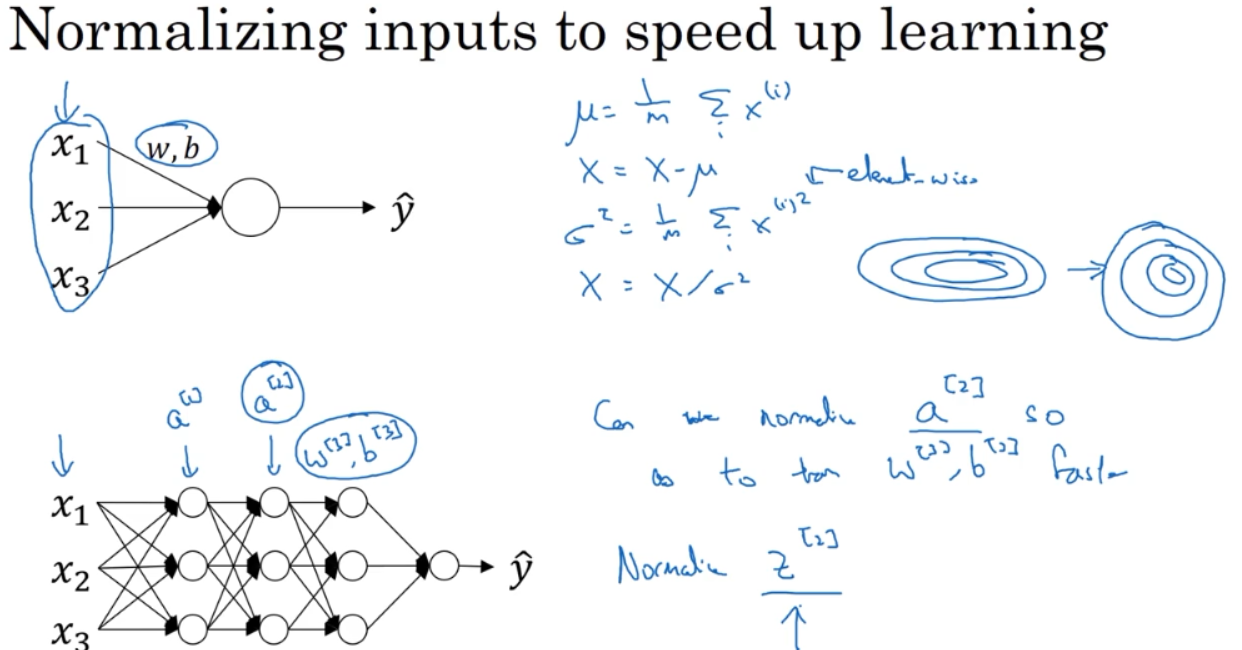 Normalizing inputs to speed up learning
x₁
w, b
x₂
ŷ
x₃
μ = 1/m Σᵢ x⁽ⁱ⁾
X = X - μ
σ² = 1/m Σᵢ x⁽ⁱ⁾² ← element-wise
X = X / σ²
a[1]
a[2]
w[3], b[3]
x₁
x₂
ŷ
x₃
Can we normalize a[2] so
as to train w[3], b[3] faster
Normalize z[2]